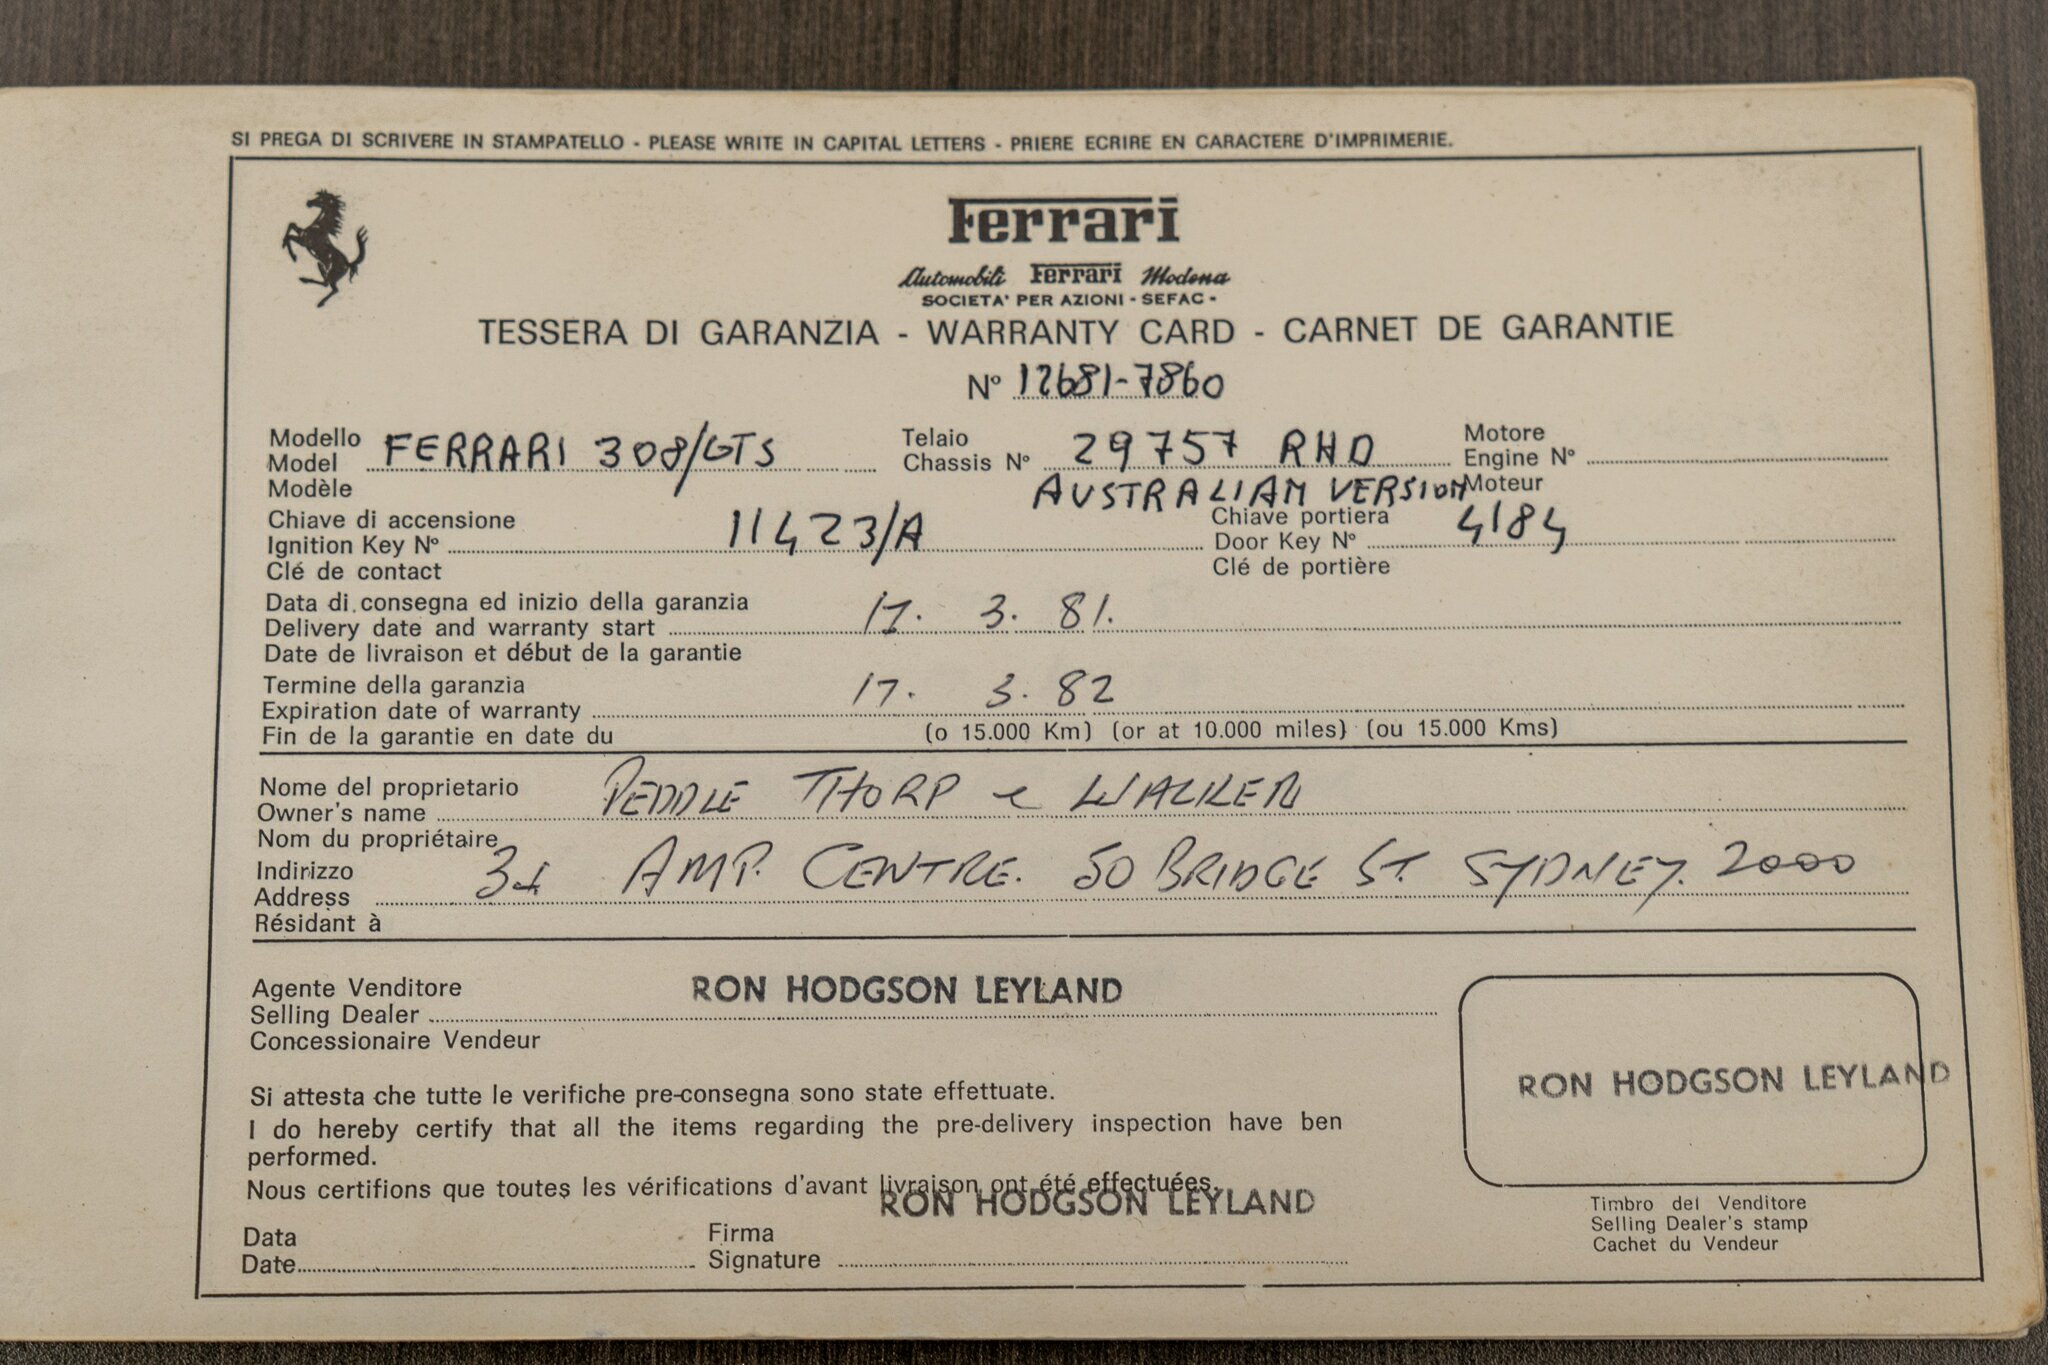 SI PREGA DI SCRIVERE IN STAMPATELLO - PLEASE WRITE IN CAPITAL LETTERS - PRIERE ECRIRE EN CARACTERE D'IMPRIMERIE.
Ferrari
Automobili Ferrari Modena
SOCIETA' PER AZIONI - SEFAC -
TESSERA DI GARANZIA - WARRANTY CARD - CARNET DE GARANTIE
Nº 12681-7860
Modello
Model FERRARI 308/GTS
Modèle
Telaio
Chassis Nº 29757 RHD
AUSTRALIAN VERSION
Motore
Engine Nº
Moteur
Chiave di accensione
Ignition Key Nº 11423/A
Clé de contact
Chiave portiera
Door Key Nº 4184
Clé de portière
Data di consegna ed inizio della garanzia
Delivery date and warranty start 17. 3. 81.
Date de livraison et début de la garantie
Termine della garanzia
Expiration date of warranty 17. 3. 82
Fin de la garantie en date du (o 15.000 Km) (or at 10.000 miles) (ou 15.000 Kms)
Nome del proprietario
Owner's name PEDDLE THORP & WALKER
Nom du propriétaire
Indirizzo
Address AMP. CENTRE. 50 BRIDGE ST. SYDNEY. 2000
Résidant à
Agente Venditore
Selling Dealer RON HODGSON LEYLAND
Concessionaire Vendeur
Si attesta che tutte le verifiche pre-consegna sono state effettuate.
I do hereby certify that all the items regarding the pre-delivery inspection have ben
performed.
Nous certifions que toutes les vérifications d'avant livraison ont été effectuées.
RON HODGSON LEYLAND
Data
Date
Firma
Signature
RON HODGSON LEYLAND
Timbro del Venditore
Selling Dealer's stamp
Cachet du Vendeur